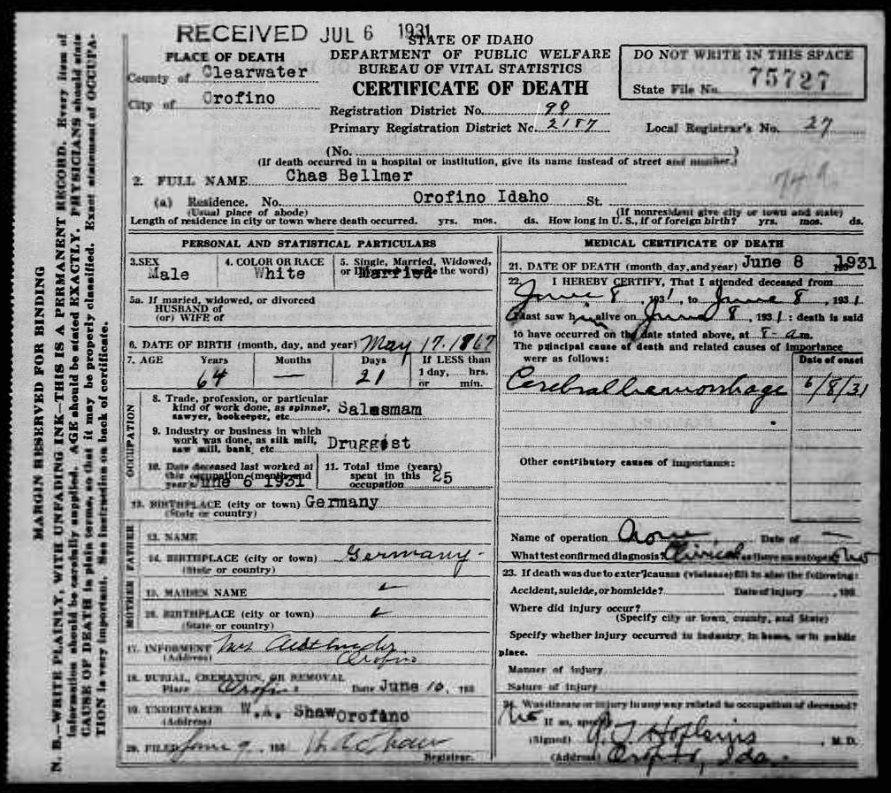 RECEIVED JUL 6 1931
STATE OF IDAHO
DEPARTMENT OF PUBLIC WELFARE
BUREAU OF VITAL STATISTICS
CERTIFICATE OF DEATH
PLACE OF DEATH
County of Clearwater
City of Orofino
DO NOT WRITE IN THIS SPACE
State File No. 75727
Registration District No. 98
Primary Registration District No. 2187
Local Registrar's No. 27
(No. )
(If death occurred in a hospital or institution, give its name instead of street and number.)
2. FULL NAME Chas Bellmer
(a) Residence. No. Orofino Idaho St.
(Usual place of abode) (If nonresident give city or town and state)
Length of residence in city or town where death occurred. yrs. mos. ds. How long in U. S., if of foreign birth? yrs. mos. ds.
PERSONAL AND STATISTICAL PARTICULARS
3. SEX 4. COLOR OR RACE 5. Single, Married, Widowed,
Male White or Married the word)
5a. If married, widowed, or divorced
HUSBAND of
(or) WIFE of
6. DATE OF BIRTH (month, day, and year) May 17. 1867
7. AGE Years Months Days If LESS than
64 — 21 1 day, hrs.
or min.
OCCUPATION
8. Trade, profession, or particular
kind of work done, as spinner,
sawyer, bookeeper, etc Salesmam
9. Industry or business in which
work was done, as silk mill,
saw mill, bank, etc Druggist
10. Date deceased last worked at 11. Total time (years)
this occupation (month and spent in this 25
year) June 6 1931 occupation
12. BIRTHPLACE (city or town) Germany
(State or country)
FATHER
13. NAME
14. BIRTHPLACE (city or town) Germany-
(State or country)
MOTHER
15. MAIDEN NAME
16. BIRTHPLACE (city or town)
(State or country)
17. INFORMENT Mrs
(Address) Orofino
18. BURIAL, CREMATION, OR REMOVAL
Place Orofino Date June 10, 193
19. UNDERTAKER W.A. Shaw Orofino
(Address)
20. FILED June 9, 193 Shaw
Registrar.
MEDICAL CERTIFICATE OF DEATH
21. DATE OF DEATH (month, day, and year) June 8 1931
22. I HEREBY CERTIFY, That I attended deceased from
June 8, 1931, to June 8, 1931
I last saw him alive on June 8, 1931: death is said
to have occurred on the date stated above, at 8- a m.
The principal cause of death and related causes of importance
were as follows: Date of onset
Cerebral hemorrhage 6/8/31
Other contributory causes of importance:
Name of operation none Date of —
What test confirmed diagnosis? Clinical no
23. If death was due to external causes (violence) fill in also the following:
Accident, suicide, or homicide? Date of injury , 193
Where did injury occur?
(Specify city or town, county, and State)
Specify whether injury occurred in industry, in home, or in public
place.
Manner of injury
Nature of injury
24. Was disease or injury in any way related to occupation of deceased?
No If so, specify
(Signed) Hopkins, M.D.
(Address) Orofino, Ida.
MARGIN RESERVED FOR BINDING
N. B.—WRITE PLAINLY, WITH UNFADING INK—THIS IS A PERMANENT RECORD. Every item of
information should be carefully supplied. AGE should be stated EXACTLY. PHYSICIANS should state
CAUSE OF DEATH in plain terms, so that it may be properly classified. Exact statement of OCCUPA-
TION is very important. See instruction on back of certificate.